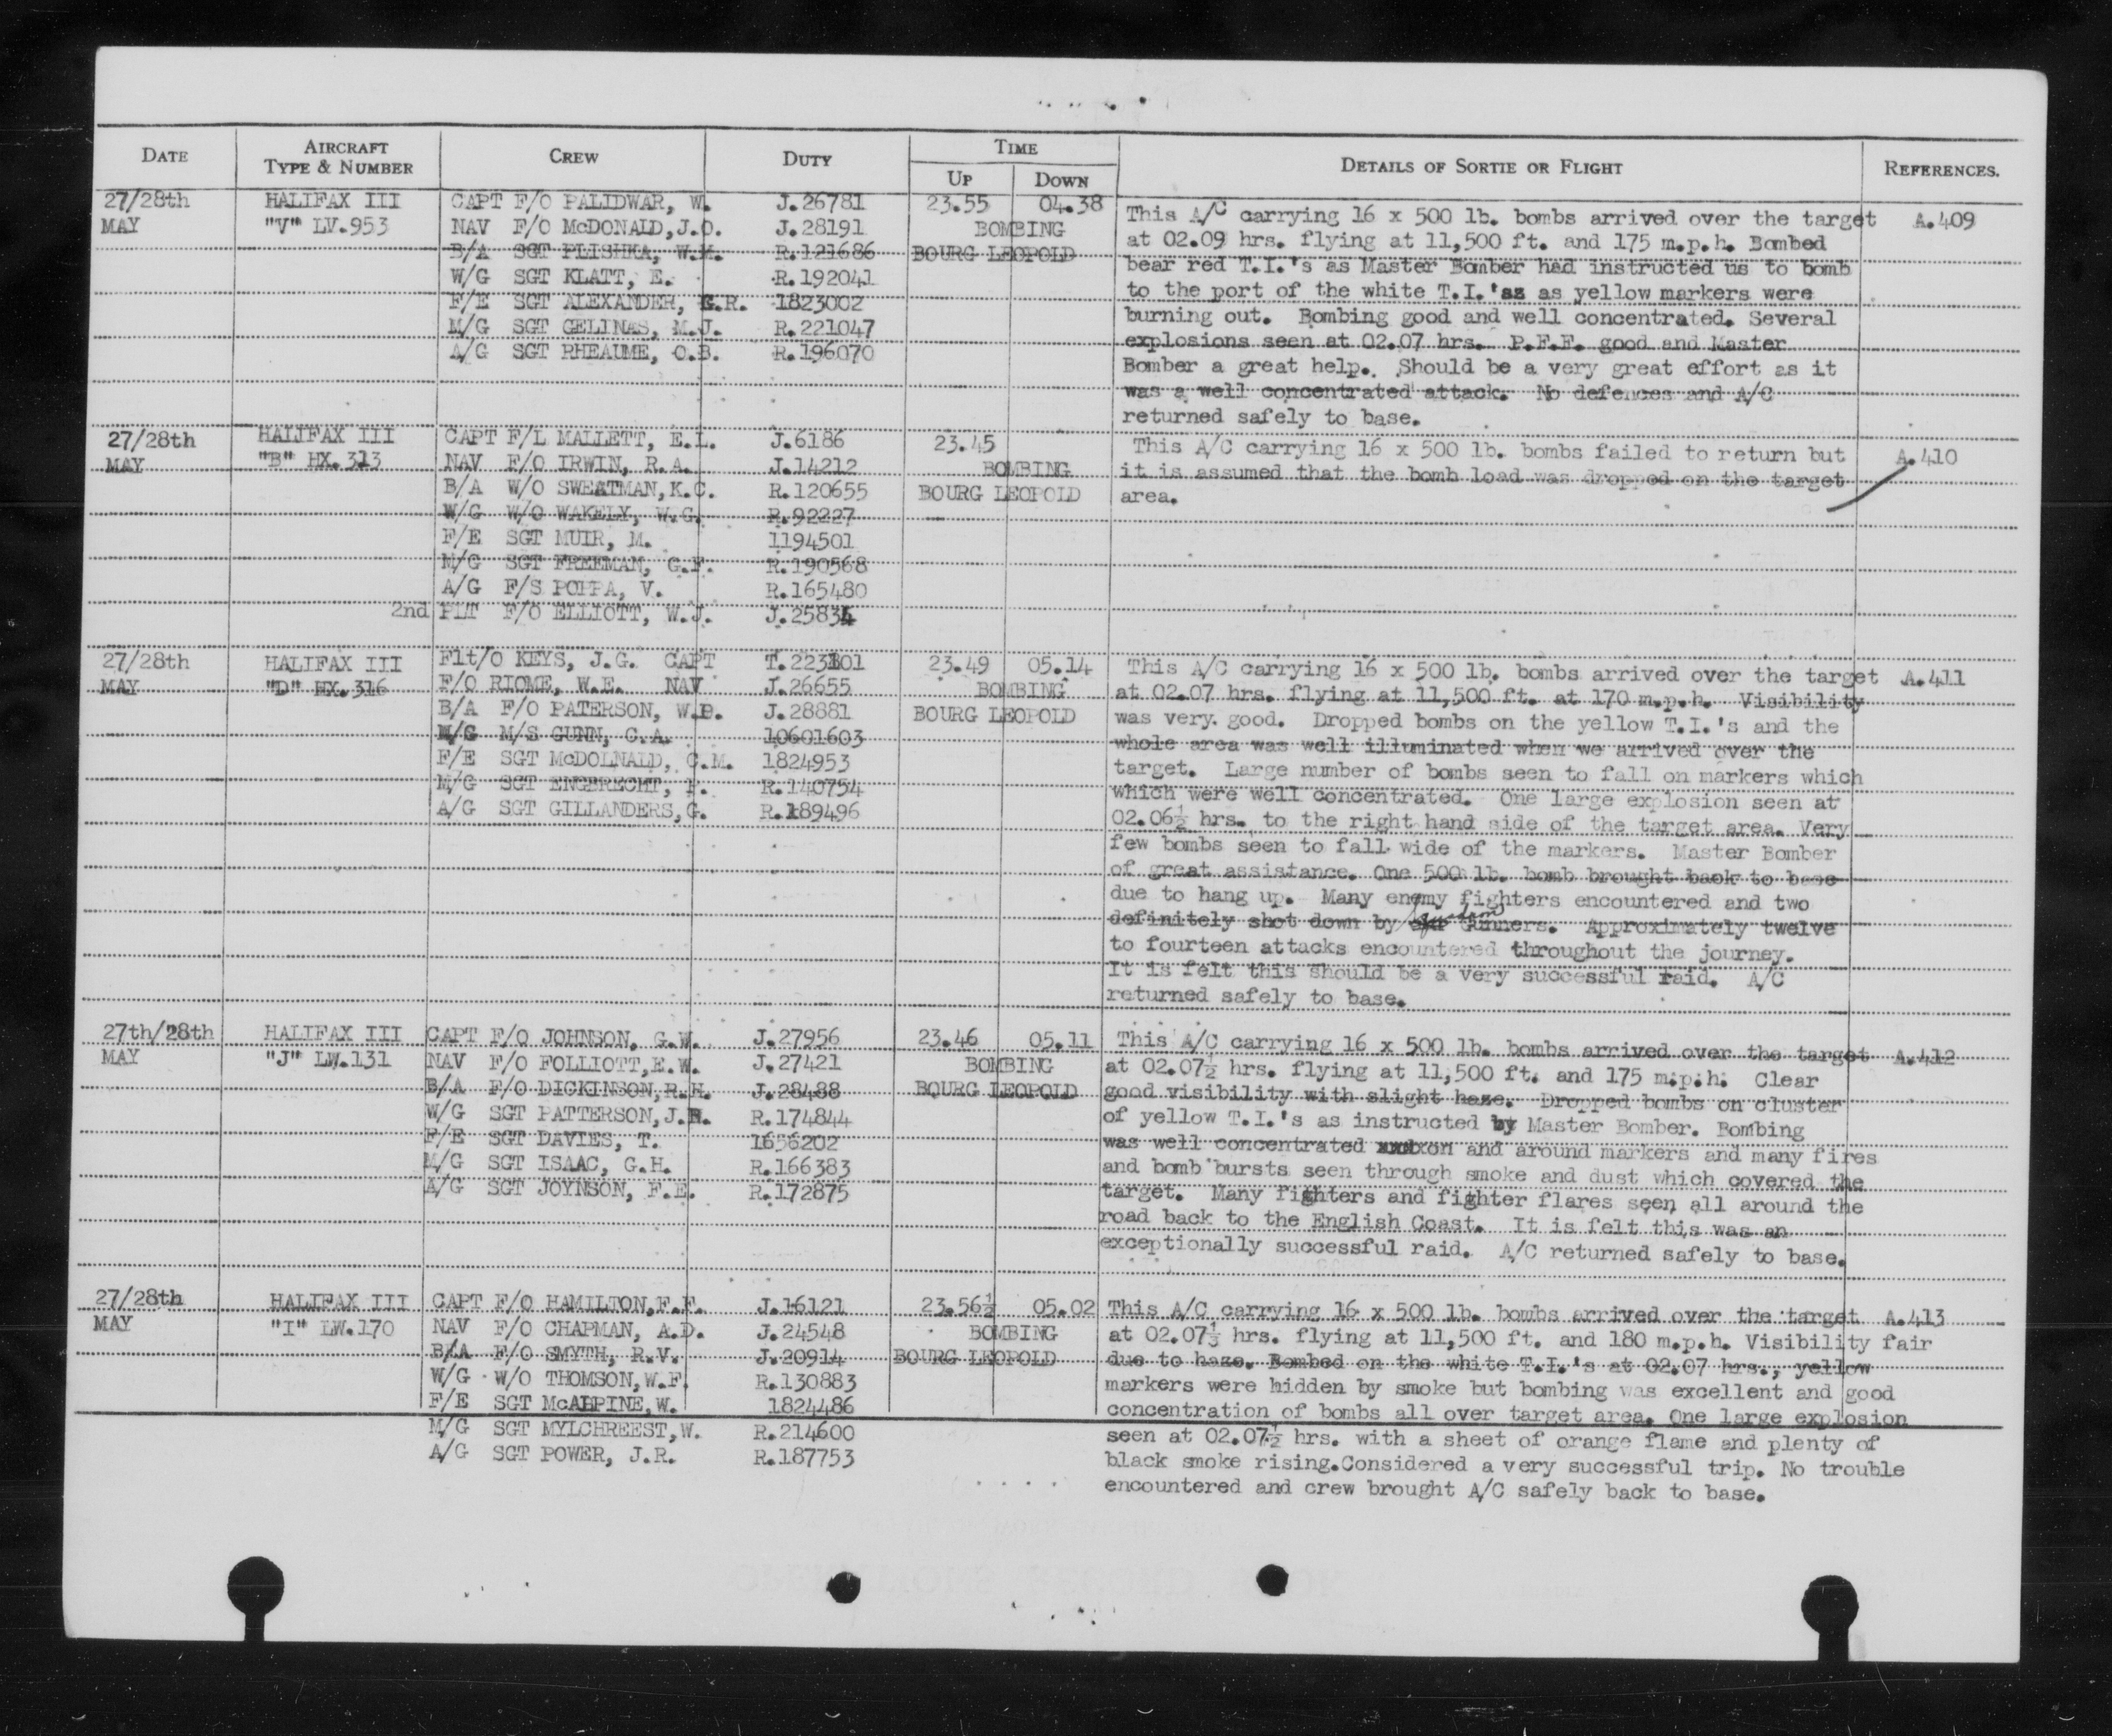 DATE AIRCRAFT TYPE & NUMBER CREW DUTY TIME UP DOWN DETAILS OF SORTIE OR FLIGHT REFERENCES.
27/28th HALIFAX III CAPT F/O PALIDWAR, W. J.26781 23.55 04.38 This A/C carrying 16 x 500 lb. bombs arrived over the target A.409
MAY "V" LV.953 NAV F/O McDONALD,J.O. J.28191 BOMBING at 02.09 hrs. flying at 11,500 ft. and 175 m.p.h. Bombed
B/A SGT PLISHKA, W.M. R.121686 BOURG LEOPOLD bear red T.I.'s as Master Bomber had instructed us to bomb
W/G SGT KLATT, E. R.192041 to the port of the white T.I.'as as yellow markers were
F/E SGT ALEXANDER, G.R. 1823002 burning out. Bombing good and well concentrated. Several
M/G SGT GELINAS, M.J. R.221047 explosions seen at 02.07 hrs. P.F.F. good and Master
A/G SGT RHEAUME, O.B. R.196070 Bomber a great help. Should be a very great effort as it
was a well concentrated attack. No defences and A/C
returned safely to base.
27/28th HALIFAX III CAPT F/L MALLETT, E.L. J.6186 23.45 This A/C carrying 16 x 500 lb. bombs failed to return but A.410
MAY "B" HX.313 NAV F/O IRWIN, R.A. J.14212 BOMBING it is assumed that the bomb load was dropped on the target
B/A W/O SWEATMAN,K.C. R.120655 BOURG LEOPOLD area.
W/G W/O WAKELY, W.G. R.92227
F/E SGT MUIR, M. 1194501
M/G SGT FREEMAN, G.F. R.190568
A/G F/S POPPA, V. R.165480
2nd PLT F/O ELLIOTT, W.J. J.25834
27/28th HALIFAX III Flt/O KEYS, J.G. CAPT T.223101 23.49 05.14 This A/C carrying 16 x 500 lb. bombs arrived over the target A.411
MAY "D" HX.316 F/O RIOME, W.E. NAV J.26655 BOMBING at 02.07 hrs. flying at 11,500 ft. at 170 m.p.h. Visibility
B/A F/O PATERSON, W.D. J.28881 BOURG LEOPOLD was very good. Dropped bombs on the yellow T.I.'s and the
W/G M/S GUNN, C.A. 10601603 whole area was well illuminated when we arrived over the
F/E SGT McDOLNALD, C.M. 1824953 target. Large number of bombs seen to fall on markers which
M/G SGT ENGBRECHT, P. R.140754 which were well concentrated. One large explosion seen at
A/G SGT GILLANDERS,G. R.189496 02.06½ hrs. to the right hand side of the target area. Very
few bombs seen to fall wide of the markers. Master Bomber
of great assistance. One 500 lb. bomb brought back to base
due to hang up. Many enemy fighters encountered and two
definitely shot down by squadron Gunners. Approximately twelve
to fourteen attacks encountered throughout the journey.
It is felt this should be a very successful raid. A/C
returned safely to base.
27th/28th HALIFAX III CAPT F/O JOHNSON, G.W. J.27956 23.46 05.11 This A/C carrying 16 x 500 lb. bombs arrived over the target A.412
MAY "J" LW.131 NAV F/O FOLLIOTT,E.W. J.27421 BOMBING at 02.07½ hrs. flying at 11,500 ft. and 175 m.p.h. Clear
B/A F/O DICKINSON,R.H. J.28488 BOURG LEOPOLD good visibility with slight haze. Dropped bombs on cluster
W/G SGT PATTERSON,J.R. R.174844 of yellow T.I.'s as instructed by Master Bomber. Bombing
F/E SGT DAVIES, T. 1656202 was well concentrated on and around markers and many fires
M/G SGT ISAAC, G.H. R.166383 and bomb bursts seen through smoke and dust which covered the
A/G SGT JOYNSON, F.E. R.172875 target. Many fighters and fighter flares seen all around the
road back to the English Coast. It is felt this was an
exceptionally successful raid. A/C returned safely to base.
27/28th HALIFAX III CAPT F/O HAMILTON,F.F. J.16121 23.56½ 05.02 This A/C carrying 16 x 500 lb. bombs arrived over the target A.413
MAY "I" LW.170 NAV F/O CHAPMAN, A.D. J.24548 BOMBING at 02.07½ hrs. flying at 11,500 ft. and 180 m.p.h. Visibility fair
B/A F/O SMYTH, R.V. J.20914 BOURG LEOPOLD due to haze. Bombed on the white T.I.'s at 02.07 hrs., yellow
W/G W/O THOMSON,W.F. R.130883 markers were hidden by smoke but bombing was excellent and good
F/E SGT McALPINE,W. 1824486 concentration of bombs all over target area. One large explosion
M/G SGT MYLCHREEST,W. R.214600 seen at 02.07½ hrs. with a sheet of orange flame and plenty of
A/G SGT POWER, J.R. R.187753 black smoke rising.Considered a very successful trip. No trouble
encountered and crew brought A/C safely back to base.